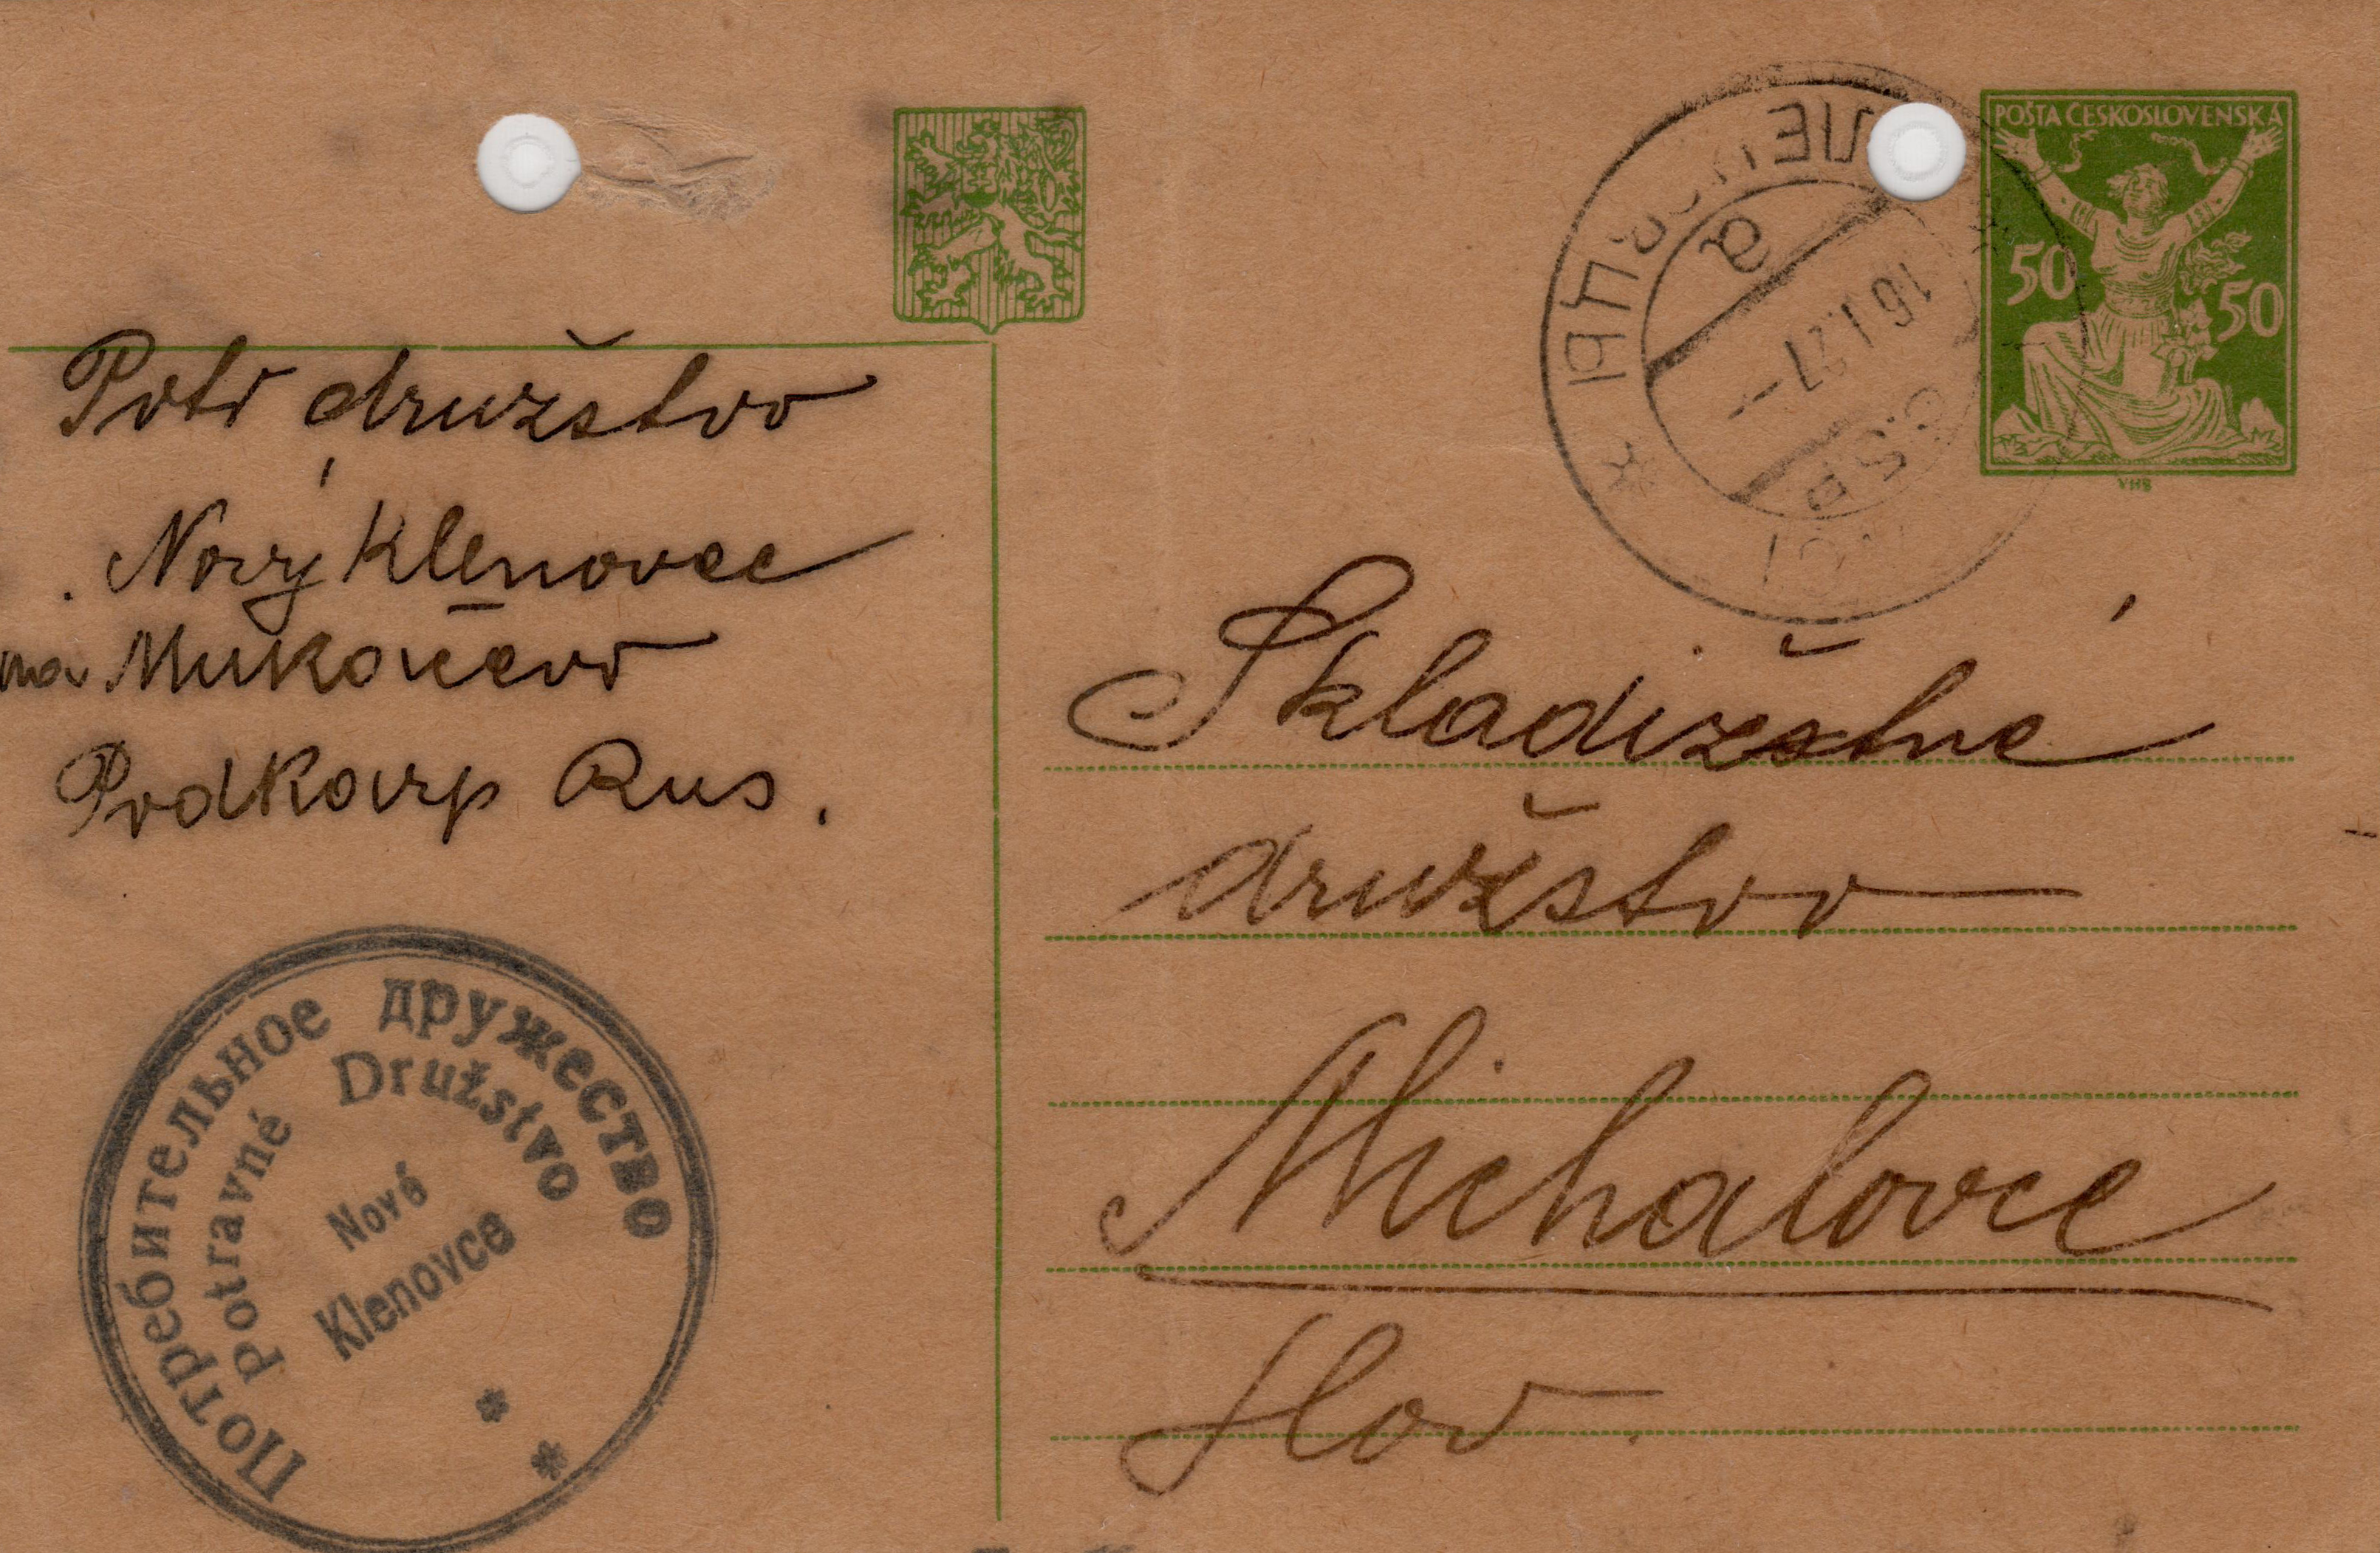 POŠTA ČESKOSLOVENSKÁ
50
50
VHB
16.I.27
a
Č.S.P.
Potr družstvo
Nový Klenovec
na Mukačevo
Podkarp Rus.
Потребительное дружество
Potravné Družstvo
Nové
Klenovce
Skladištné
družstvo
Michalovce
Slov.